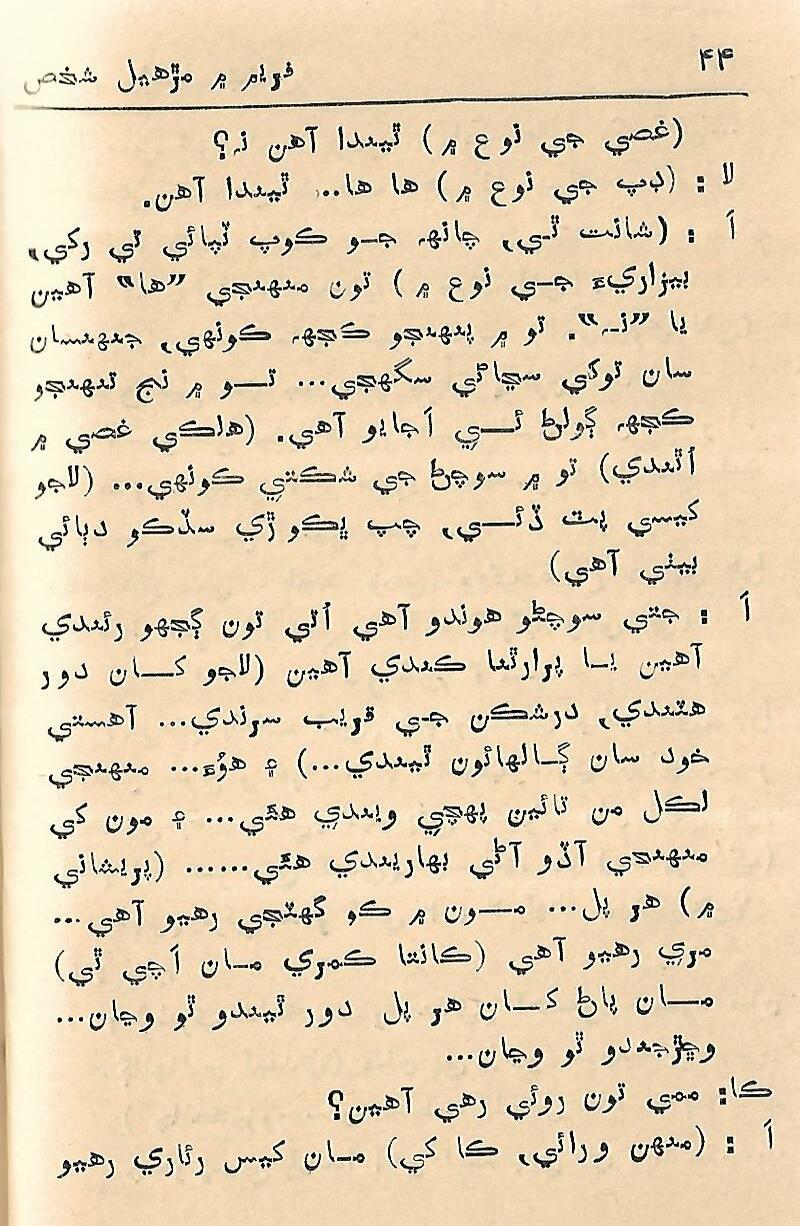 ۴۴
فريم ۾ مڙهيل شخص
(غصي جي نوع ۾) ٿيندا آهن نہ؟
لا : (ڊپ جي نوع ۾) ها ها... ٿيندا آهن.
اَ : (شانت ٿي، چانهہ جو ڪوپ ٽپائي تي رکي،
بيزاريءَ جي نوع ۾) تون منهنجي ”ها“ آهين
يا ”نہ“. تو ۾ پنهنجو ڪجهہ ڪونهي، جنهنسان
سان توکي سڃاڻي سگهجي... تو ۾ نج تنهنجو
ڪجهہ ڳولڻ ئي اَجايو آهي. (هلڪي غصي ۾
اُٿندي) تو ۾ سوچڻ جي شڪتي ڪونهي... (لاجو
کيسي پٺ ڏئي، چپ ڀڪوڙي سڏڪو دٻائي
بيٺي آهي)
اَ : جتي سوچڻو هوندو آهي اُتي تون ڳجهو رئندي
آهين يا پرارٿنا ڪندي آهين (لاجو کان دور
هٽندي، درشڪن جي قريب سرندي... آهستي
خود سان ڳالهائون ٿيندي...) ۽ هوُءَ... منهنجي
لڪل من تائين پهچي ويندي هئي... ۽ مون کي
منهنجي آڏو آڻي بهاريندي هئي...... (پريشاني
۾) هر پل... مون ۾ ڪو گهٽجي رهيو آهي...
مري رهيو آهي (ڪانتا ڪمري مان اَچي ٿي)
مان پاڻ کان هر پل دور ٿيندو ٿو وڃان...
وڇڙجندو ٿو وڃان...
ڪا: ممي تون روئي رهي آهين؟
اَ : (منهن ورائي، ڪا کي) مان کيس رئاري رهيو